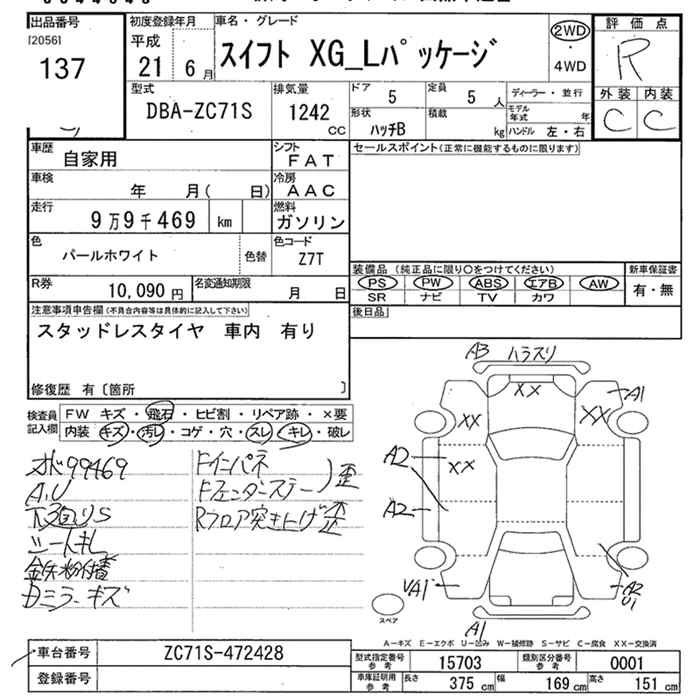 出品番号
[20561
137
初度登録年月
平成
21 6月
車名・グレード
スイフト XG_Lパッケージ
2WD
・
4WD
評価点
R
外装 内装
C C
型式
DBA-ZC71S
排気量
1242
CC
ドア
5
定員
5 人
ディーラー・並行
形状
ハッチB
積載
kg
モデル年式
年
ハンドル 左・右
車歴
自家用
シフト
FAT
セールスポイント(正常に機能するものに限ります)
車検
年 月( 日)
冷房
AAC
走行
9万9千469 km
燃料
ガソリン
色
パールホワイト
色替
色コード
Z7T
装備品 (純正品に限り○をつけてください)
新車保証書
PS PW ABS エアB AW
SR ナビ TV カワ
有・無
R券
10,090円
名変通知期限
月 日
後日品
注意事項申告欄(不具合内容等は具体的に記入して下さい)
スタッドレスタイヤ 車内 有り
修復歴 有〔箇所 〕
検査員
記入欄
FW キズ・飛石・ヒビ割・リペア跡・×要
内装 キズ・汚レ・コゲ・穴・スレ・キレ・破レ
99469
A.U
シートキレ
ミラーキズ
Fインパネ
Fフェンダーステー
歪
Rフロア突き上げ 歪
A3 ハラスリ
XX
A1
XX
XX
A2
XX
A2
A2
U1
A1
スペア
A-キズ E-エクボ U-凹み W-補修跡 S-サビ C-腐食 XX-交換済
車台番号
ZC71S-472428
登録番号
型式指定番号
参考
15703
類別区分番号
参考
0001
車庫証明用
参考
長さ 375 cm 幅 169 cm 高さ 151 cm